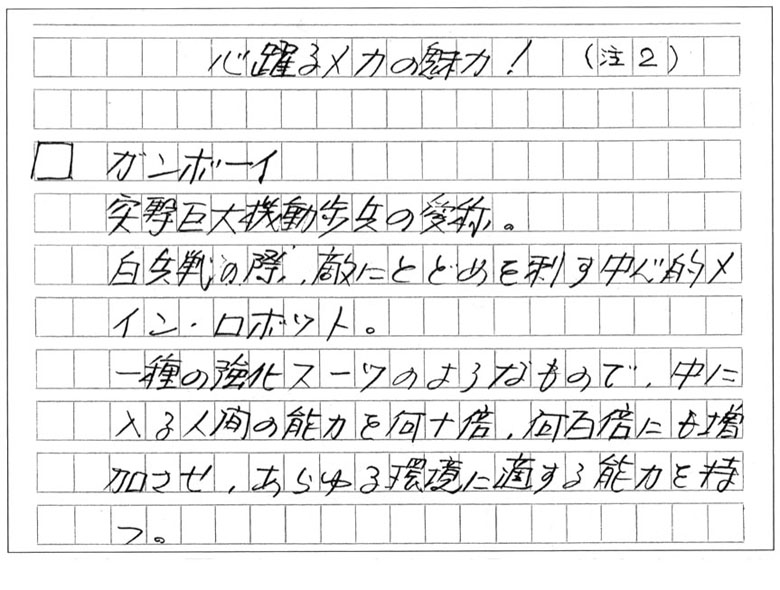 心躍るメカの魅力！　（注２）
□　ガンボーイ
突撃巨大機動歩兵の愛称。
白兵戦の際、敵にとどめを刺す中心的メ
イン・ロボット。
一種の強化スーツのようなもので、中に
入る人間の能力を何十倍、何百倍にも増
加させ、あらゆる環境に適する能力を持
つ。